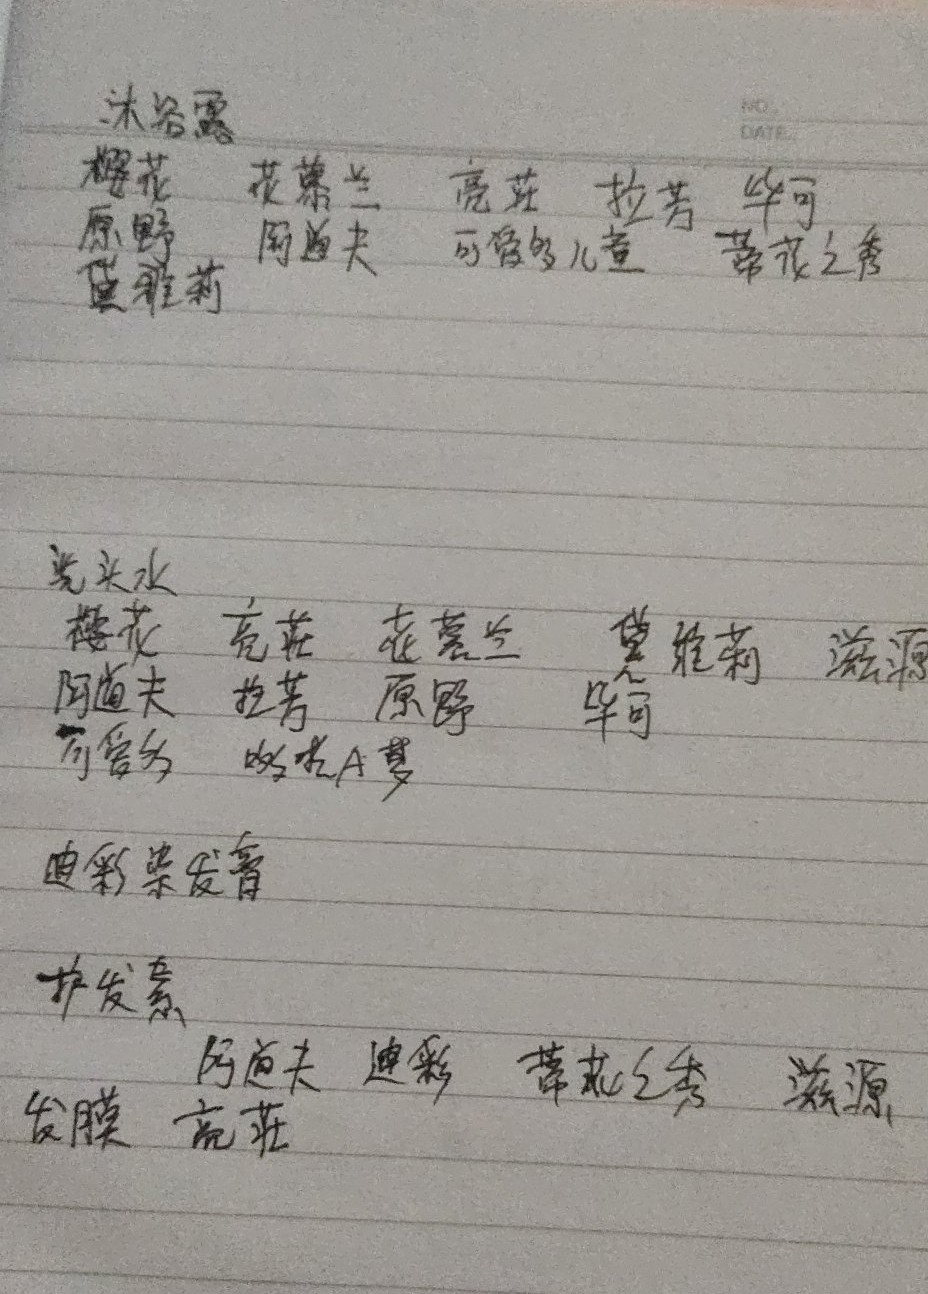 NO.
DATE.
沐浴露
樱花 花慕兰 亮荘 拉芳 毕可
原野 阿道夫 可爱多儿童 蒂花之秀
黛雅莉
洗头水
樱花 亮荘 花慕兰 黛雅莉 滋源
阿道夫 拉芳 原野 毕可
可爱多 哆啦A梦
迪彩染发膏
护发素
阿道夫 迪彩 蒂花之秀 滋源
发膜 亮荘